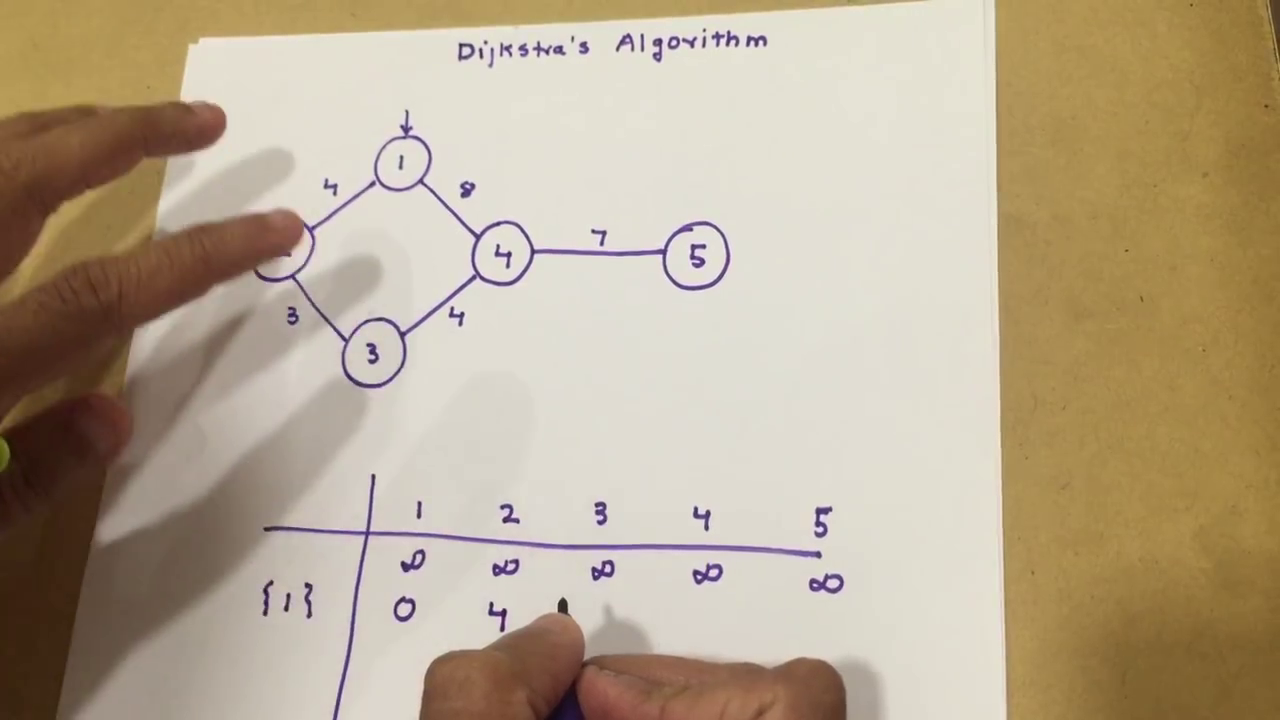 Dijkstra's Algorithm
1
4 8
4 7 5
3 4
3
1 2 3 4 5
∞ ∞ ∞ ∞ ∞
{1} 0 4